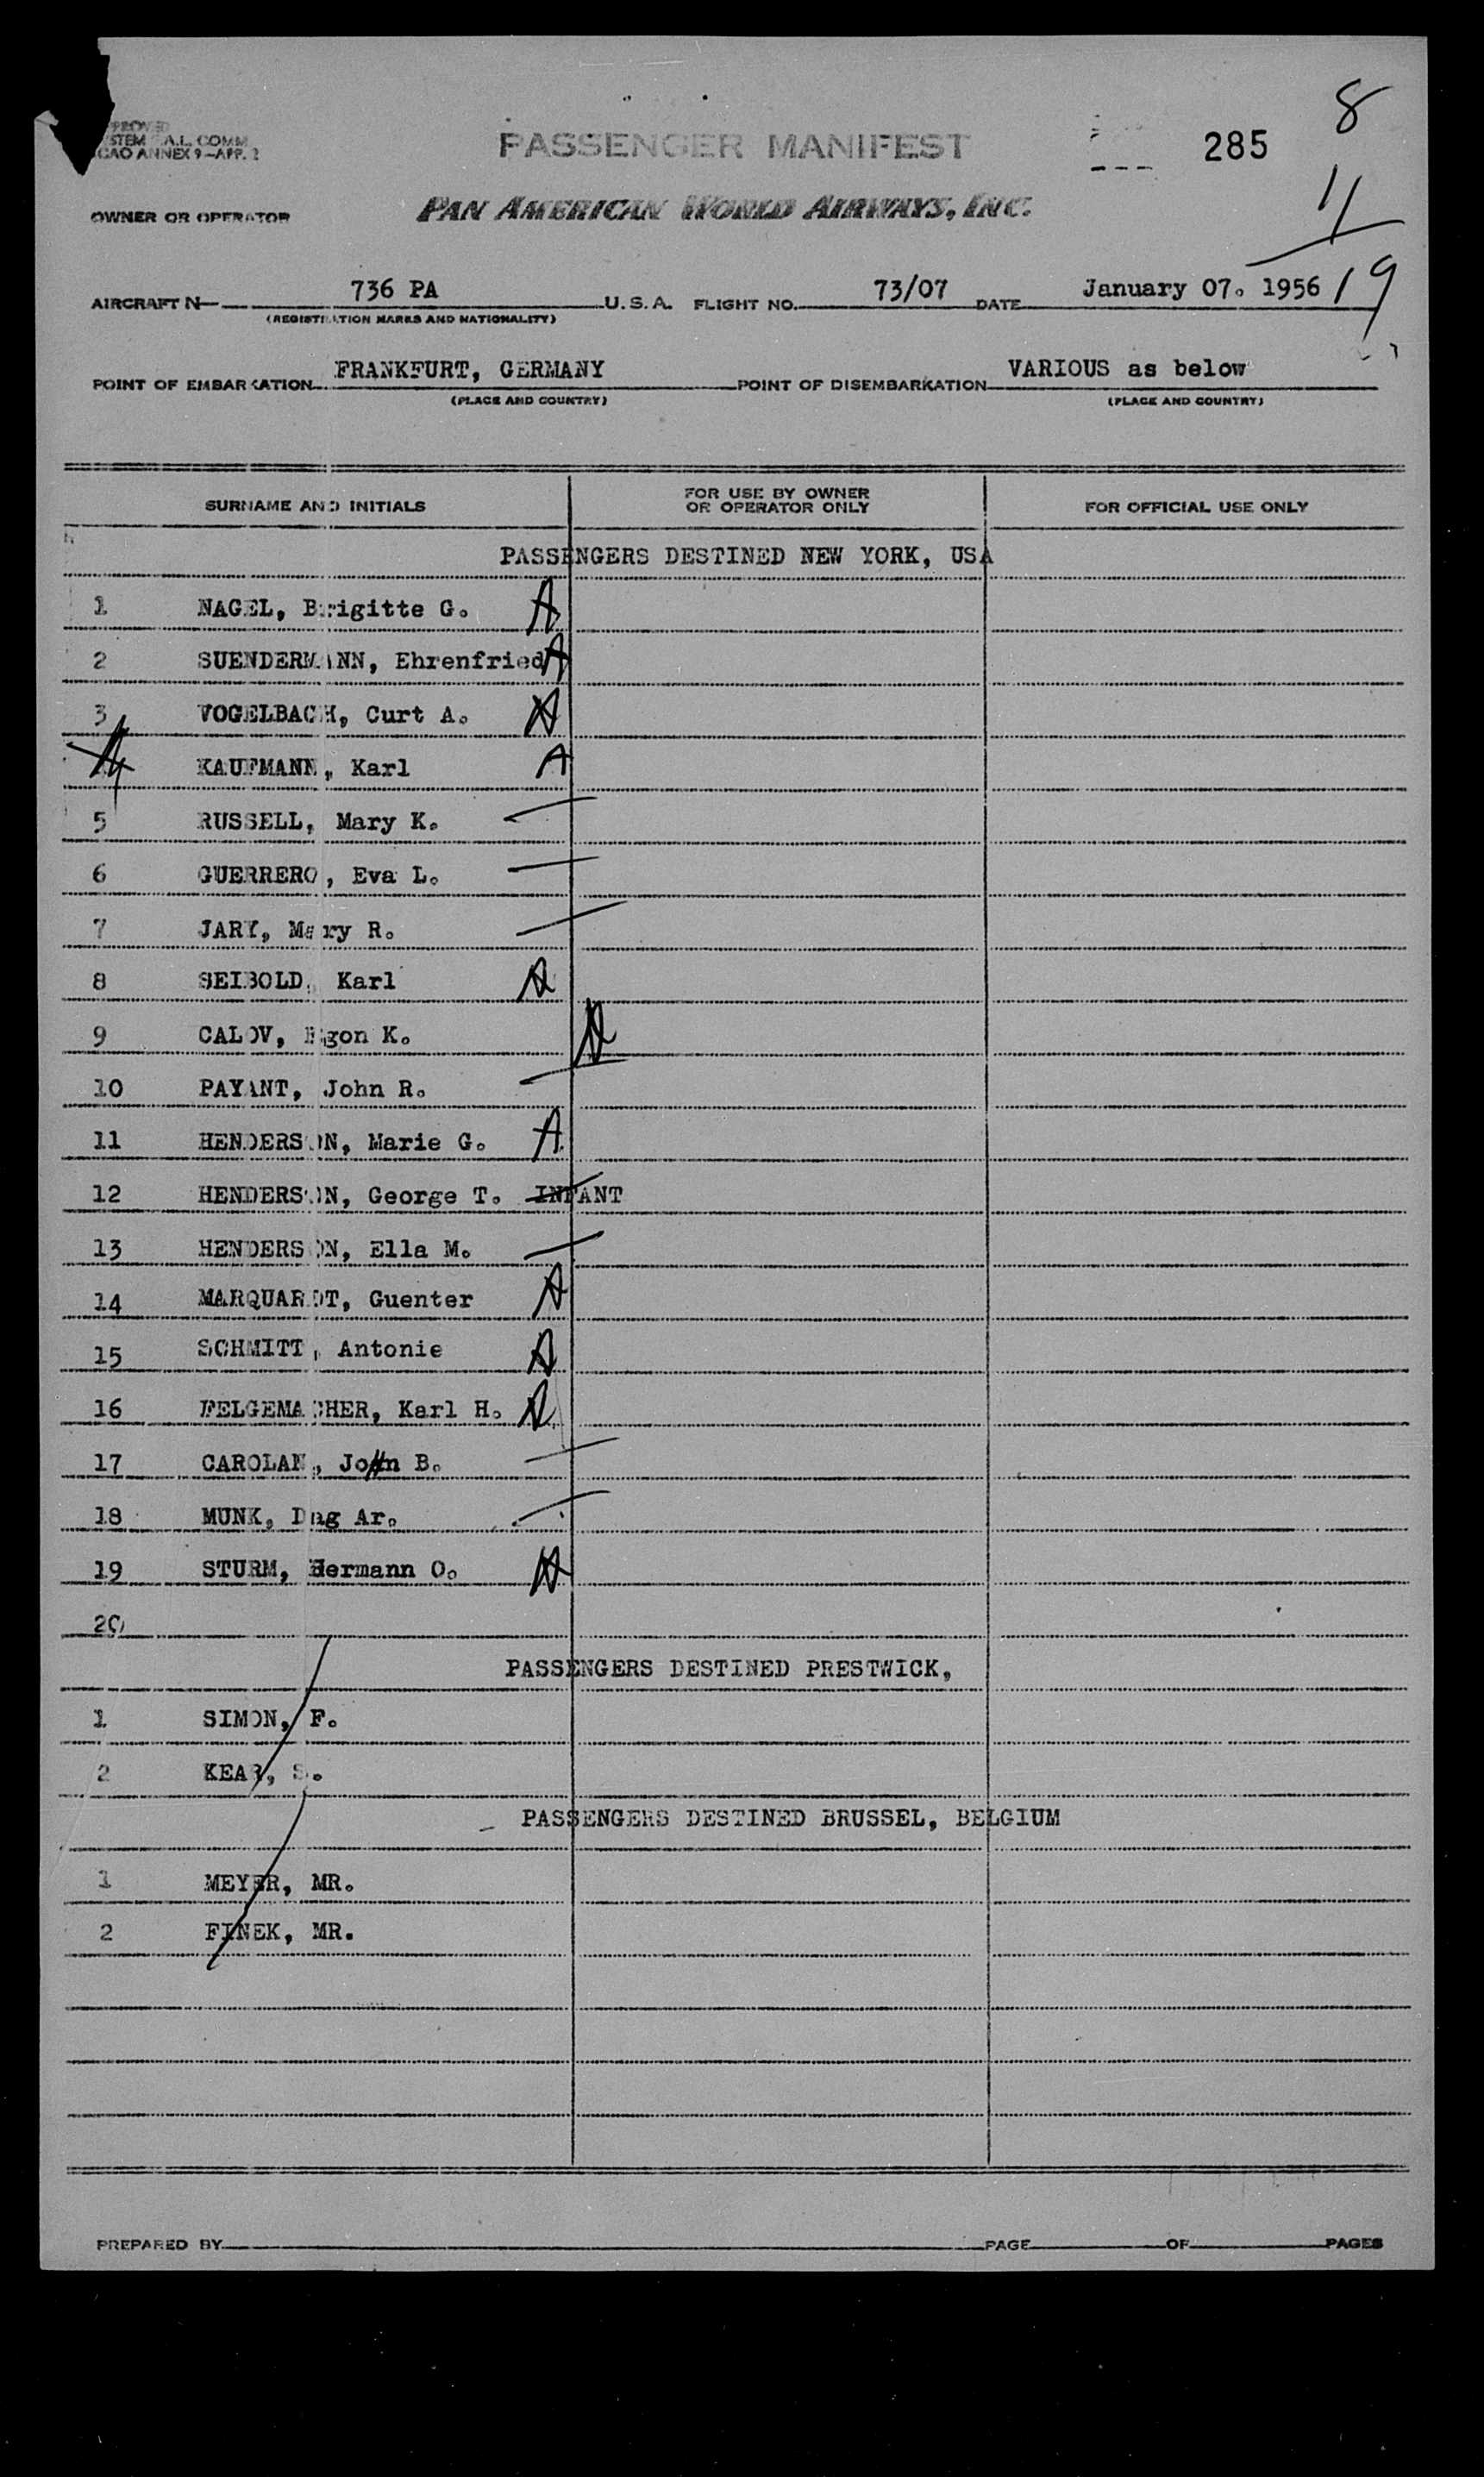 8
PASSENGER MANIFEST
285
CAO ANNEX 9-APP. 2
11
OWNER OR OPERATOR PAN AMERICAN WORLD AIRWAYS, INC.
19
AIRCRAFT N 736 PA U.S.A. FLIGHT NO. 73/07 DATE January 07. 1956
(REGISTRATION MARKS AND NATIONALITY)
POINT OF EMBARKATION FRANKFURT, GERMANY POINT OF DISEMBARKATION VARIOUS as below
(PLACE AND COUNTRY) (PLACE AND COUNTRY)
SURNAME AND INITIALS FOR USE BY OWNER OR OPERATOR ONLY FOR OFFICIAL USE ONLY
PASSENGERS DESTINED NEW YORK, USA
1 NAGEL, Brigitte G. A
2 SUENDERMANN, Ehrenfried A
3 VOGELBACH, Curt A. A
4 KAUFMANN, Karl A
5 RUSSELL, Mary K.
6 GUERRERO, Eva L.
7 JARY, Mary R.
8 SEIBOLD, Karl A
9 CALOV, Egon K. A
10 PAYANT, John R.
11 HENDERSON, Marie G. A
12 HENDERSON, George T. INFANT
13 HENDERSON, Ella M.
14 MARQUARDT, Guenter A
15 SCHMITT, Antonie A
16 FELGEMACHER, Karl H. A
17 CAROLAN, John B.
18 MUNK, Dag Ar.
19 STURM, Hermann O. A
20
PASSENGERS DESTINED PRESTWICK,
1 SIMON, F.
2 KEAR, S.
PASSENGERS DESTINED BRUSSEL, BELGIUM
1 MEYER, MR.
2 FINEK, MR.
PREPARED BY PAGE OF PAGES